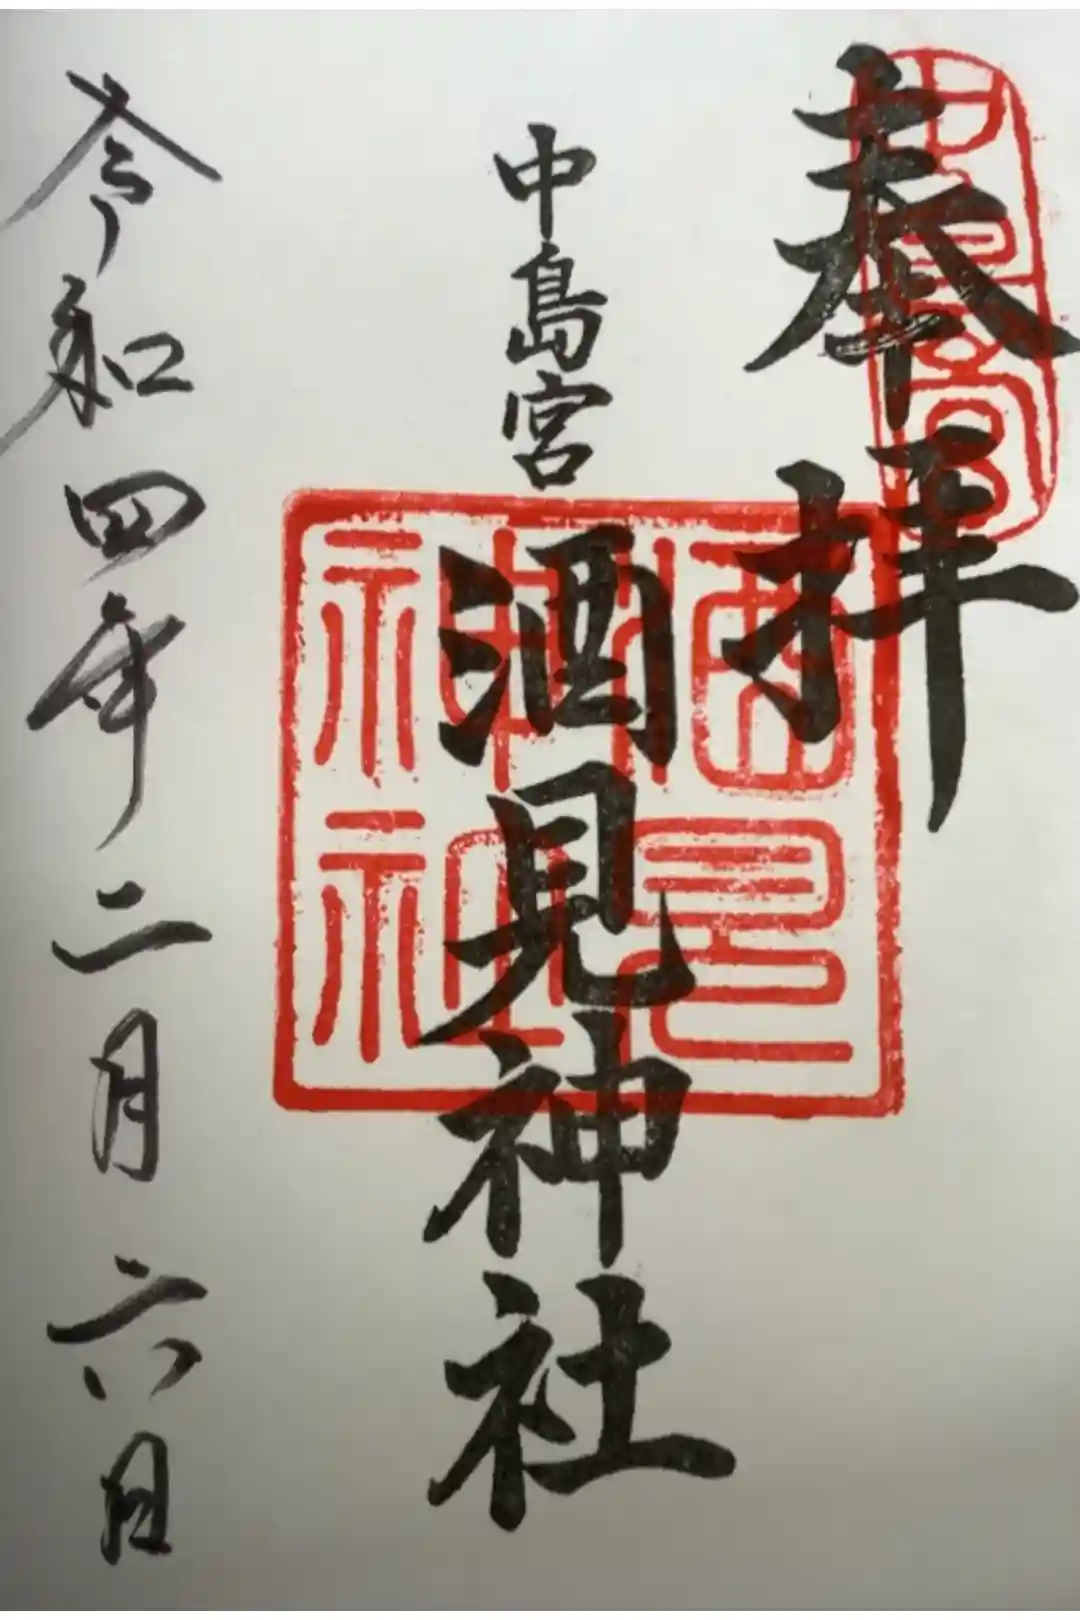 奉拝
中島宮
酒見神社
令和四年二月六日
中島宮
酉見神社